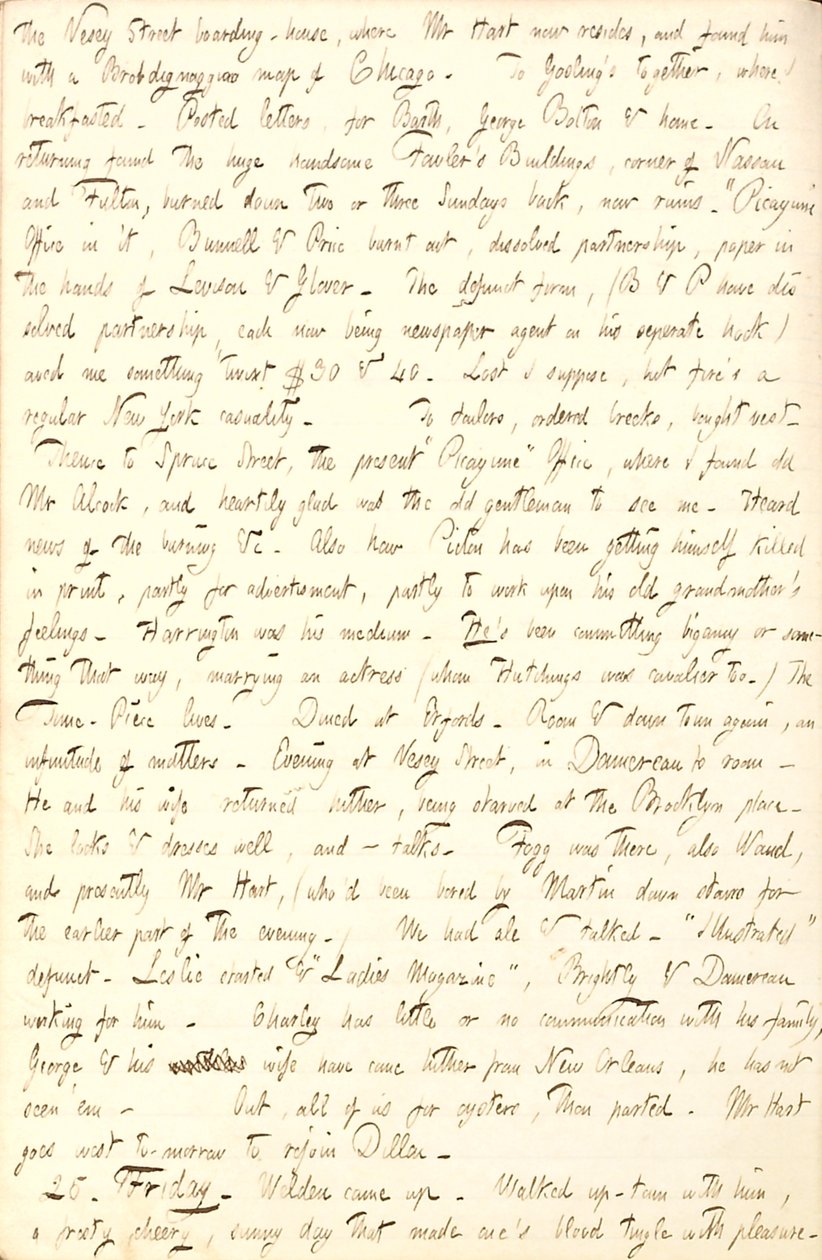 the Vesey Street boarding-house, where Mr Hart now resides, and found him
with a Brobdignaggian map of Chicago. To Gosling's together, where I
breakfasted. Posted letters, for Barth, George Bolton & home. On
returning found the huge handsome Fowler's Buildings, corner of Nassau
and Fulton, burned down two or three Sundays back, now ruins. "Picayune
Office in it, Bunnell & Price burnt out, dissolved partnership, paper in
the hands of Levison & Glover. The defunct firm, (B & P have dis
solved partnership, each now being newspaper agent on his seperate hook)
owed me something 'twixt $30 & 40. Lost I suppose, but fire's a
regular New York casuality. To tailors, ordered breeks, bought vest.
Thence to Spruce Street, the present "Picayune" Office, where I found old
Mr Alcock, and heartily glad was the old gentleman to see me. Heard
news of the burning &c. Also how Picton has been getting himself killed
in print, partly for advertisment, partly to work upon his old grandmother's
feelings. Harrington was his medium. He's been committing bigamy or some-
thing that way, marrying an actress (whom Hutchings was cavalier to.) The
Time-Piece lives. Dined at Erfords. Room & down town again, an
infinitude of matters. Evening at Vesey Street, in Damereau's room.
He and his wife returned hither, being starved at the Brooklyn place.
She looks & dresses well, and — talks. Fogg was there, also Waud,
and presently Mr Hart, (who'd been bored by Martin down stairs for
the earlier part of the evening.) We had ale & talked. "Illustrated"
defunct. Leslie started & "Ladies Magazine", Brightly & Damereau
working for him. Charley has little or no communication with his family,
George & his wife have come hither from New Orleans, he has not
seen 'em. Out, all of us for oysters, then parted. Mr Hart
goes west to-morrow to rejoin Dillon.
25. Friday. Welden came up. Walked up-town with him,
a frosty, cheery, sunny day that made one's blood tingle with pleasure.